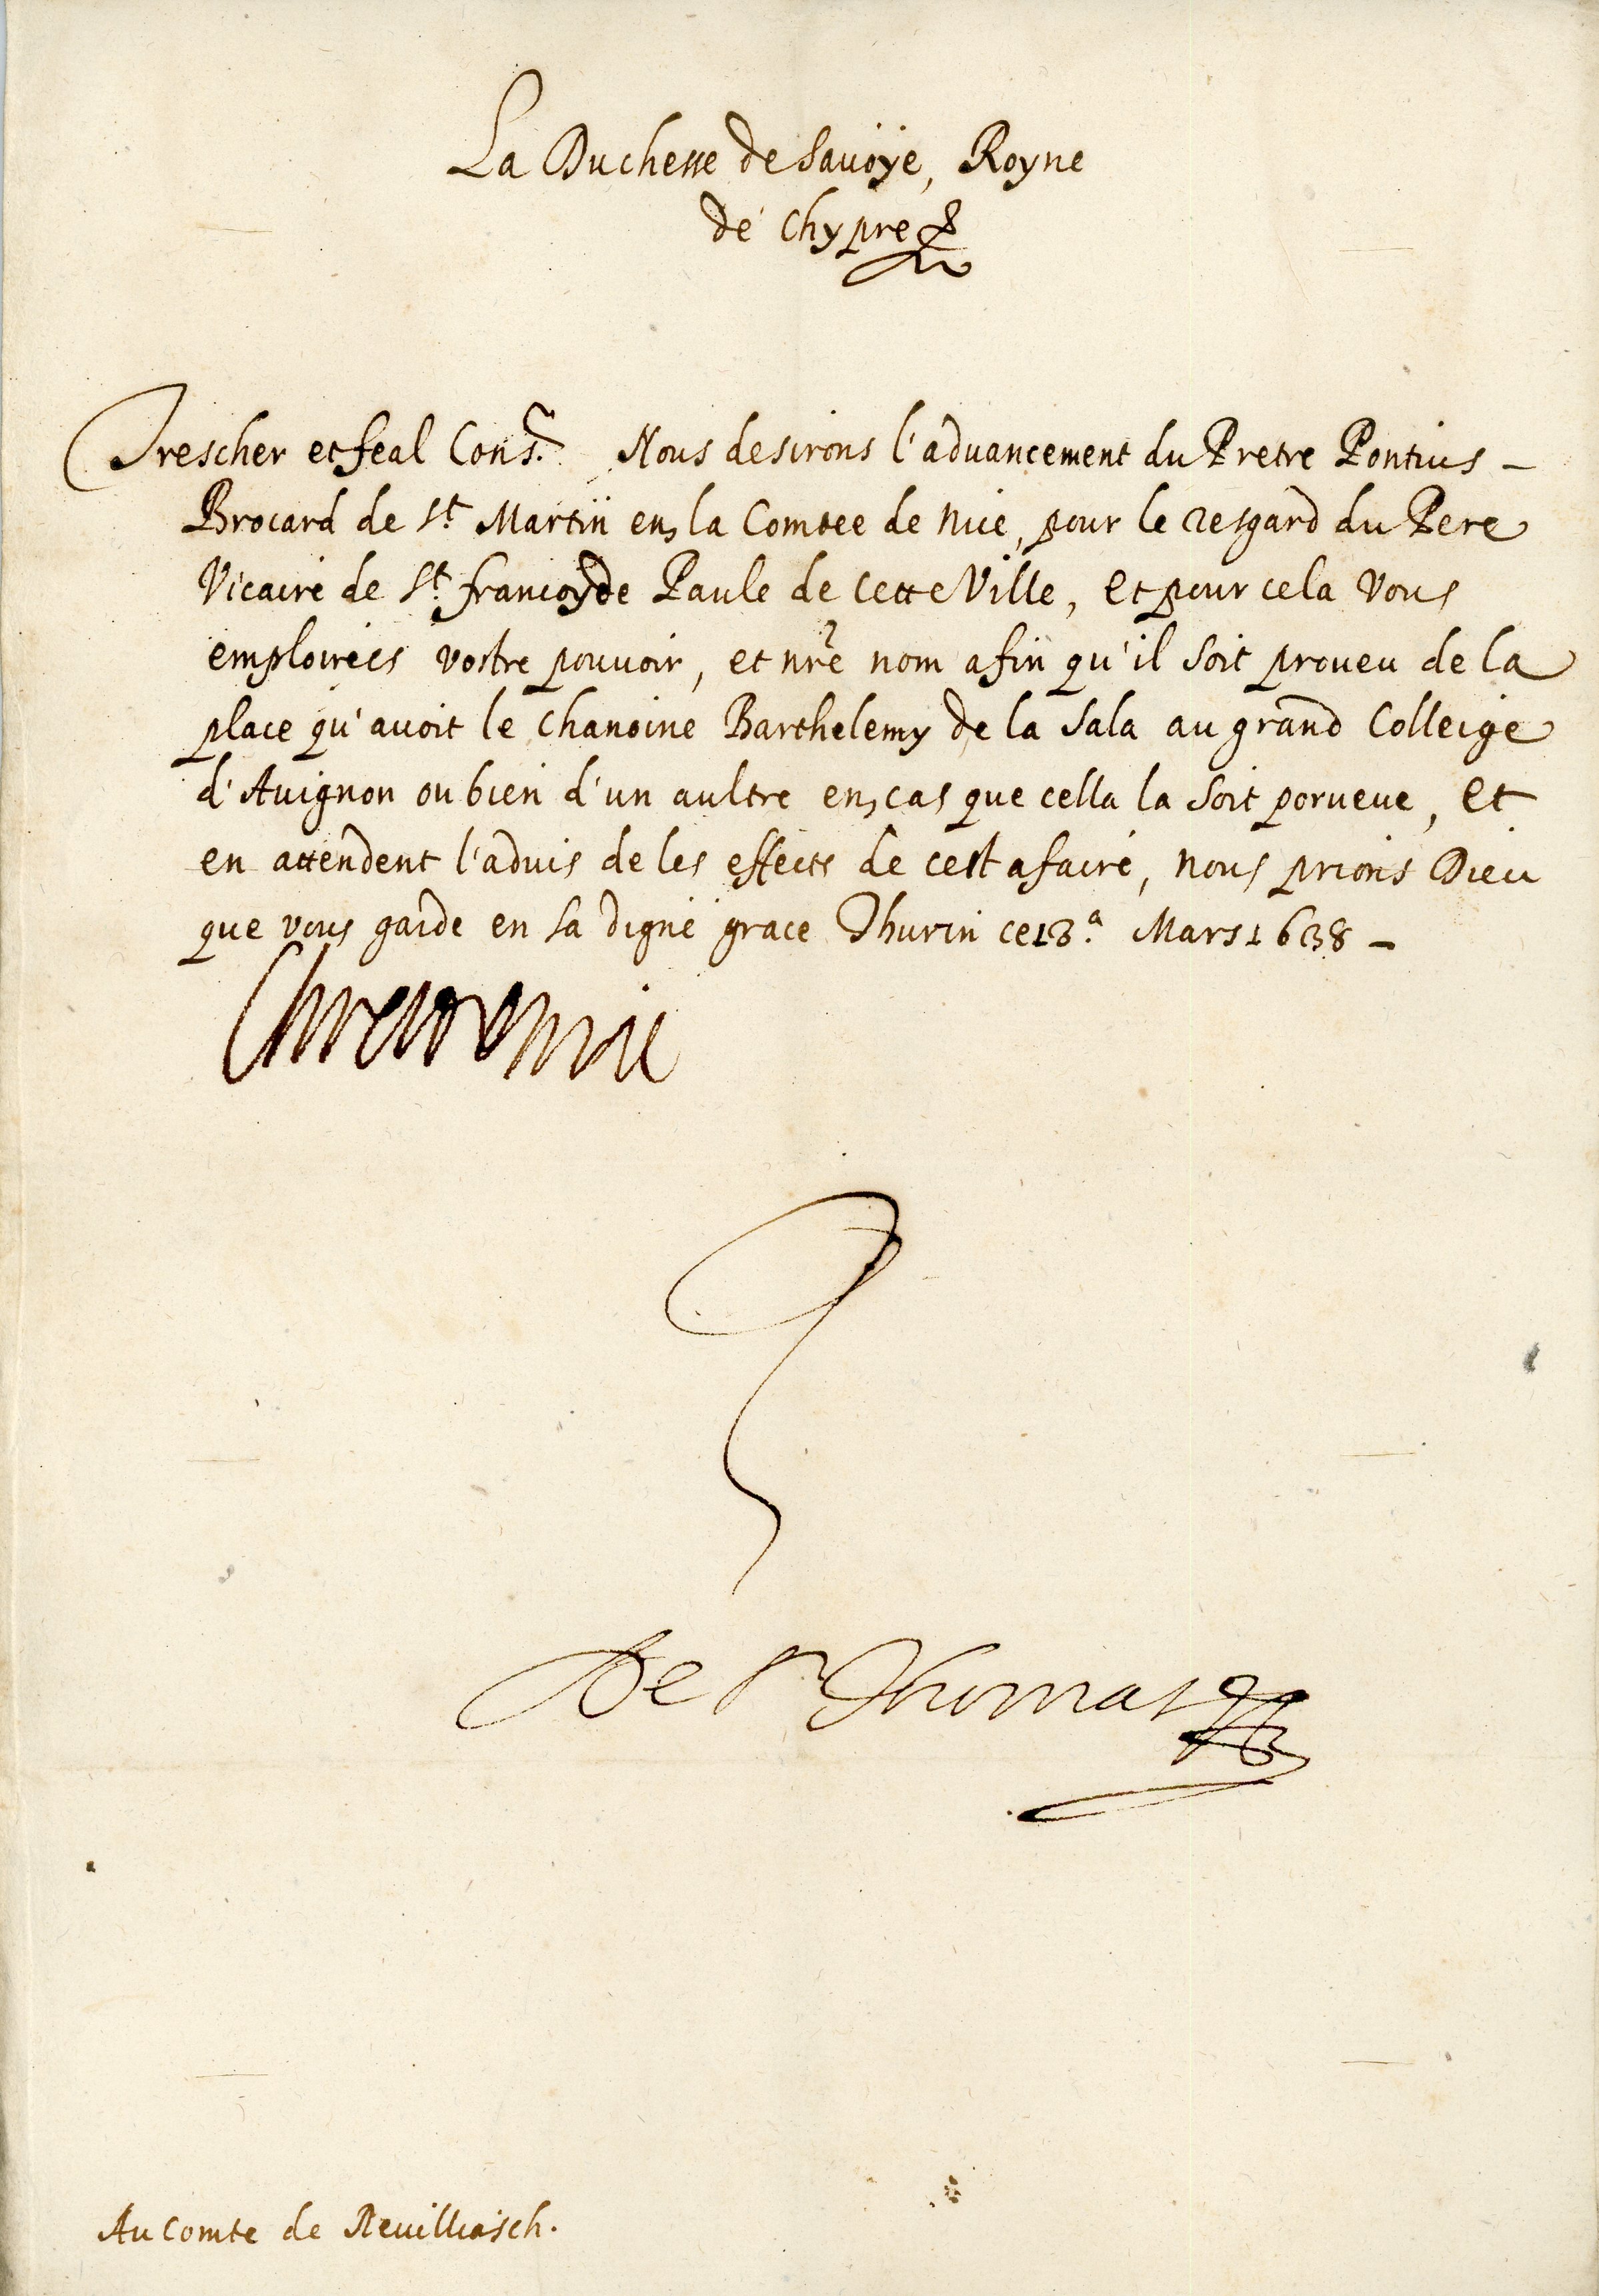 La Duchesse de Sauoÿe, Royne
de Chypre
Trescher et feal Cons.r Nous desirons l'aduancement du Pretre Pontius
Brocard de S.t Martin en la Comtee de Nice, pour le resgard du Pere
Vicaire de S.t francoy de Paule de cette Ville, et pour cela vous
emploirees vostre pouvoir, et nre nom afin qu'il soit proueu de la
place qu'auoit le Chanoine Barthelemy de la Sala au grand Colleige
d'Auignon ou bien d'un aultre en cas que cella la soit porueue, et
en attendent l'aduis de les effects de cest afaire, nous prions Dieu
que vous garde en sa digne grace Thurin ce 13.a Mars 1638
Chrestienne
De St Thomas
Au Comte de